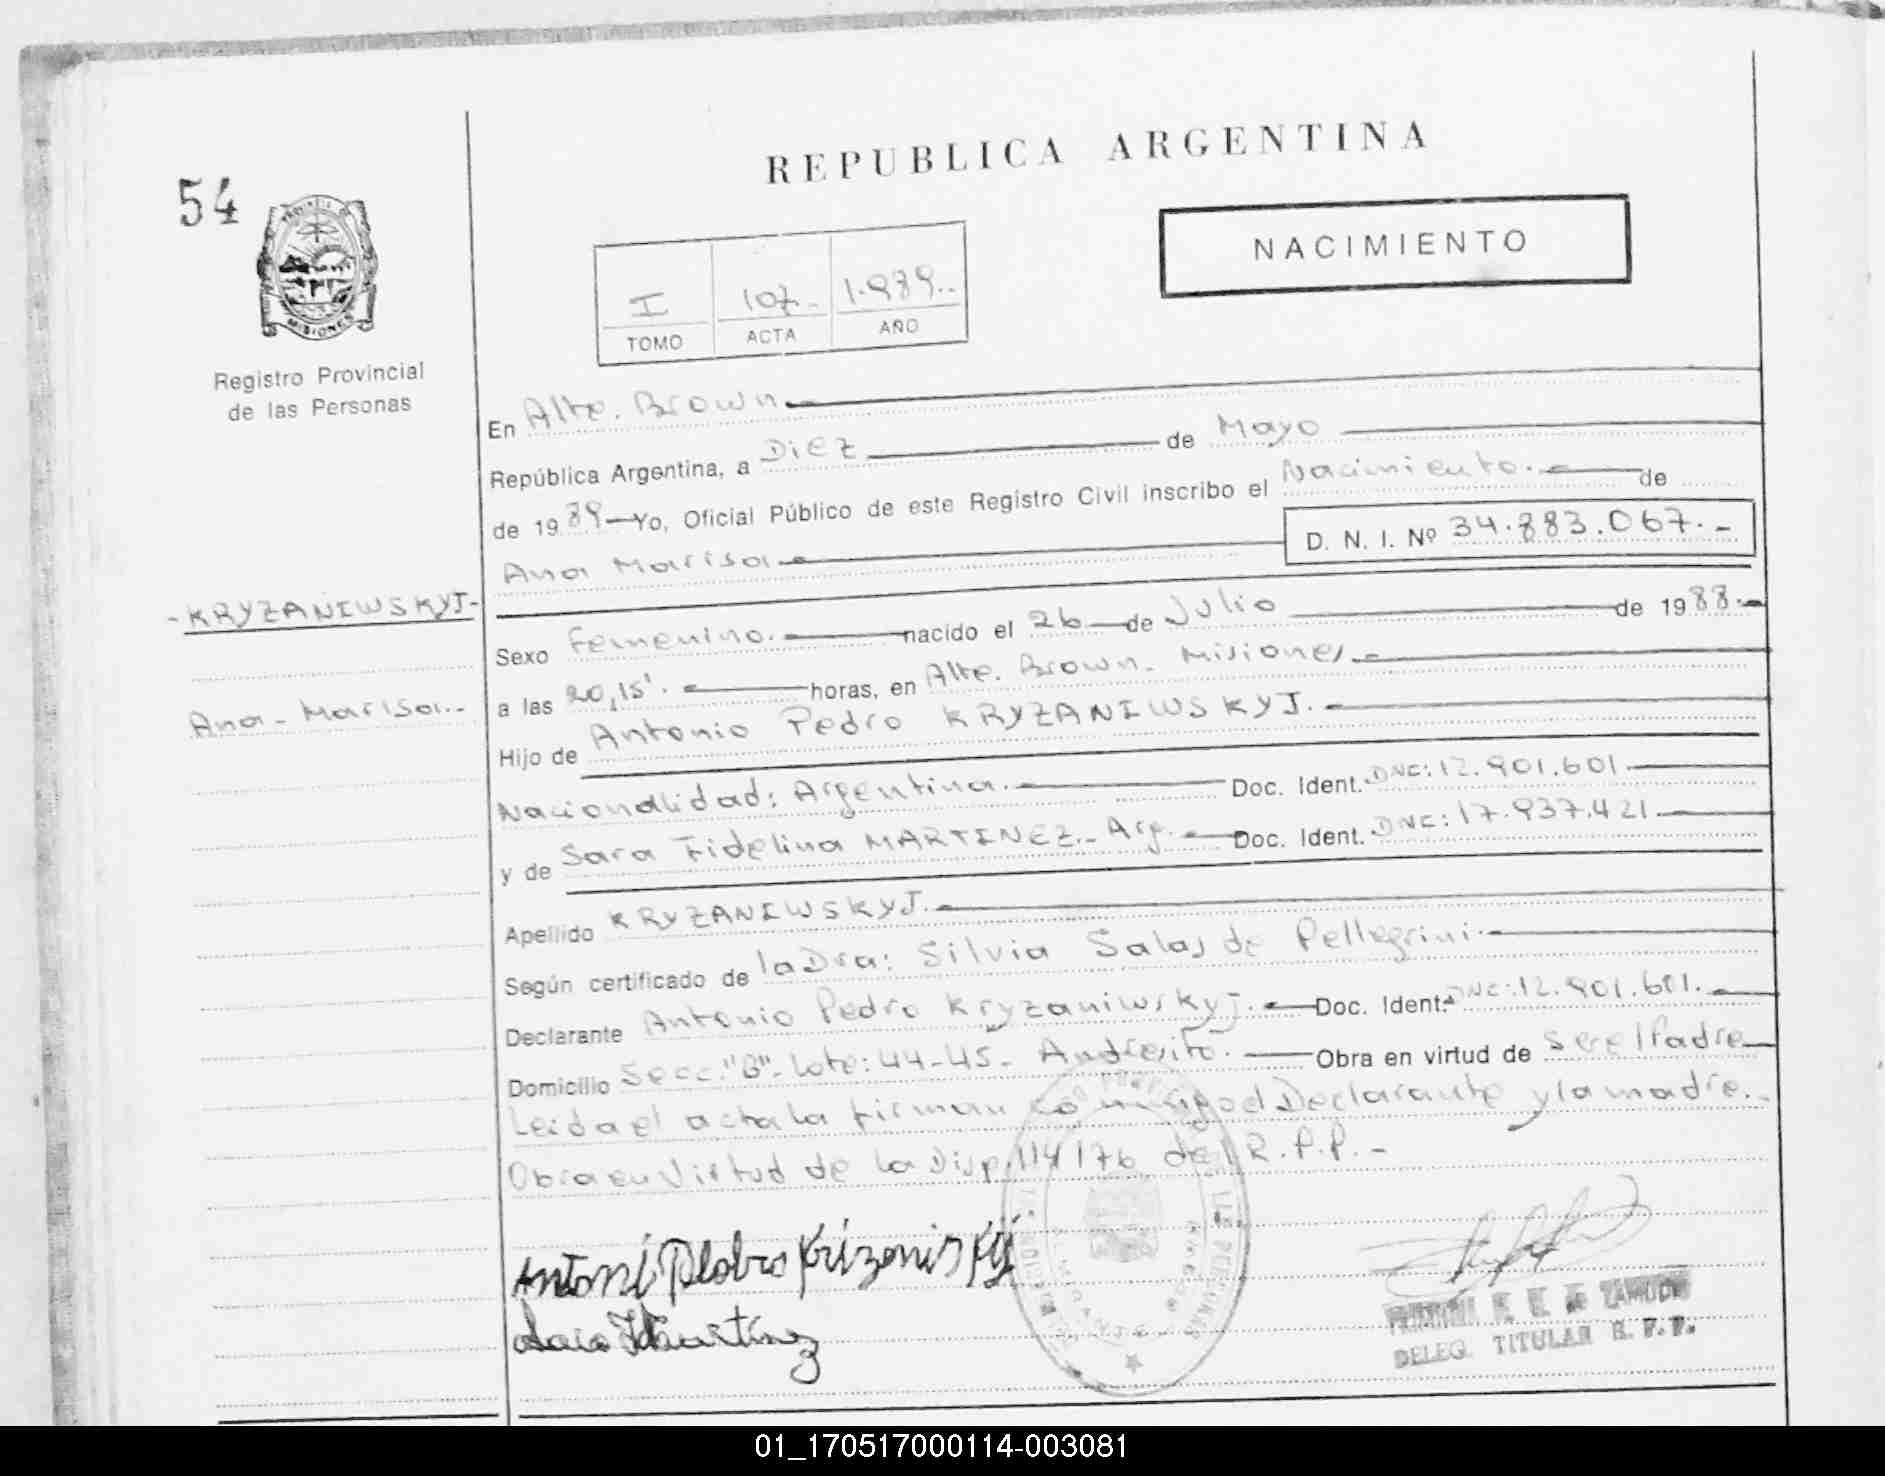 REPUBLICA ARGENTINA
54
NACIMIENTO
PROVINCIA DE
MISIONES
I 107.- 1.989.-
TOMO ACTA AÑO
Registro Provincial
de las Personas
En Alte. Brown
República Argentina, a Diez de Mayo
de 1989 Yo, Oficial Público de este Registro Civil inscribo el Nacimiento. de
Ana Marisol D. N. I. Nº 34.883.067.-
-KRYZANIWSKYJ-
Sexo Femenino. nacido el 26 de Julio de 1988.-
a las 20,15'. horas, en Alte. Brown. Misiones.
Ana-Marisol.-
Hijo de Antonio Pedro KRYZANIWSKYJ.
Nacionalidad: Argentina. Doc. Ident. DNI: 12.901.601
y de Sara Fidelina MARTINEZ.- Arg. Doc. Ident. DNI: 17.937.421
Apellido KRYZANIWSKYJ.
Según certificado de la Dra: Silvia Salas de Pellegrini.
Declarante Antonio Pedro Kryzaniwskyj. Doc. Ident. DNI: 12.901.601.
Domicilio Secc: "B"- Lote: 44-45- Andresito. Obra en virtud de Ser el Padre
Leida el acta la firman conmigo el Declarante y la madre.-
Obra en Virtud de la Disp. 114/76 del R.P.P.-
DELEG. TITULAR R. P. P.
01_170517000114-003081